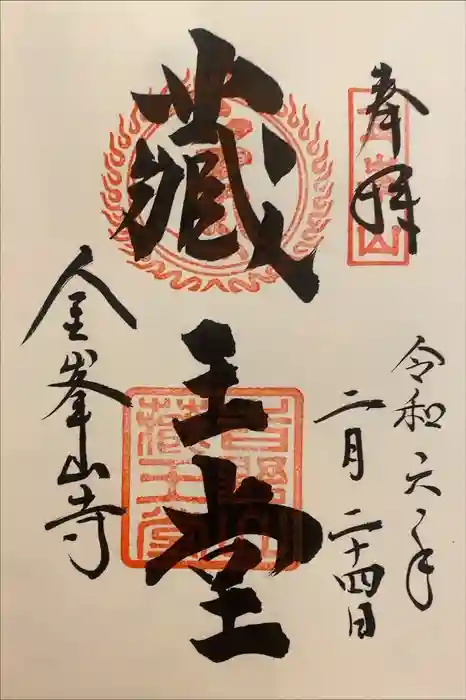 奉拝
令和六年
二月二十四日
藏王堂
金峯山寺